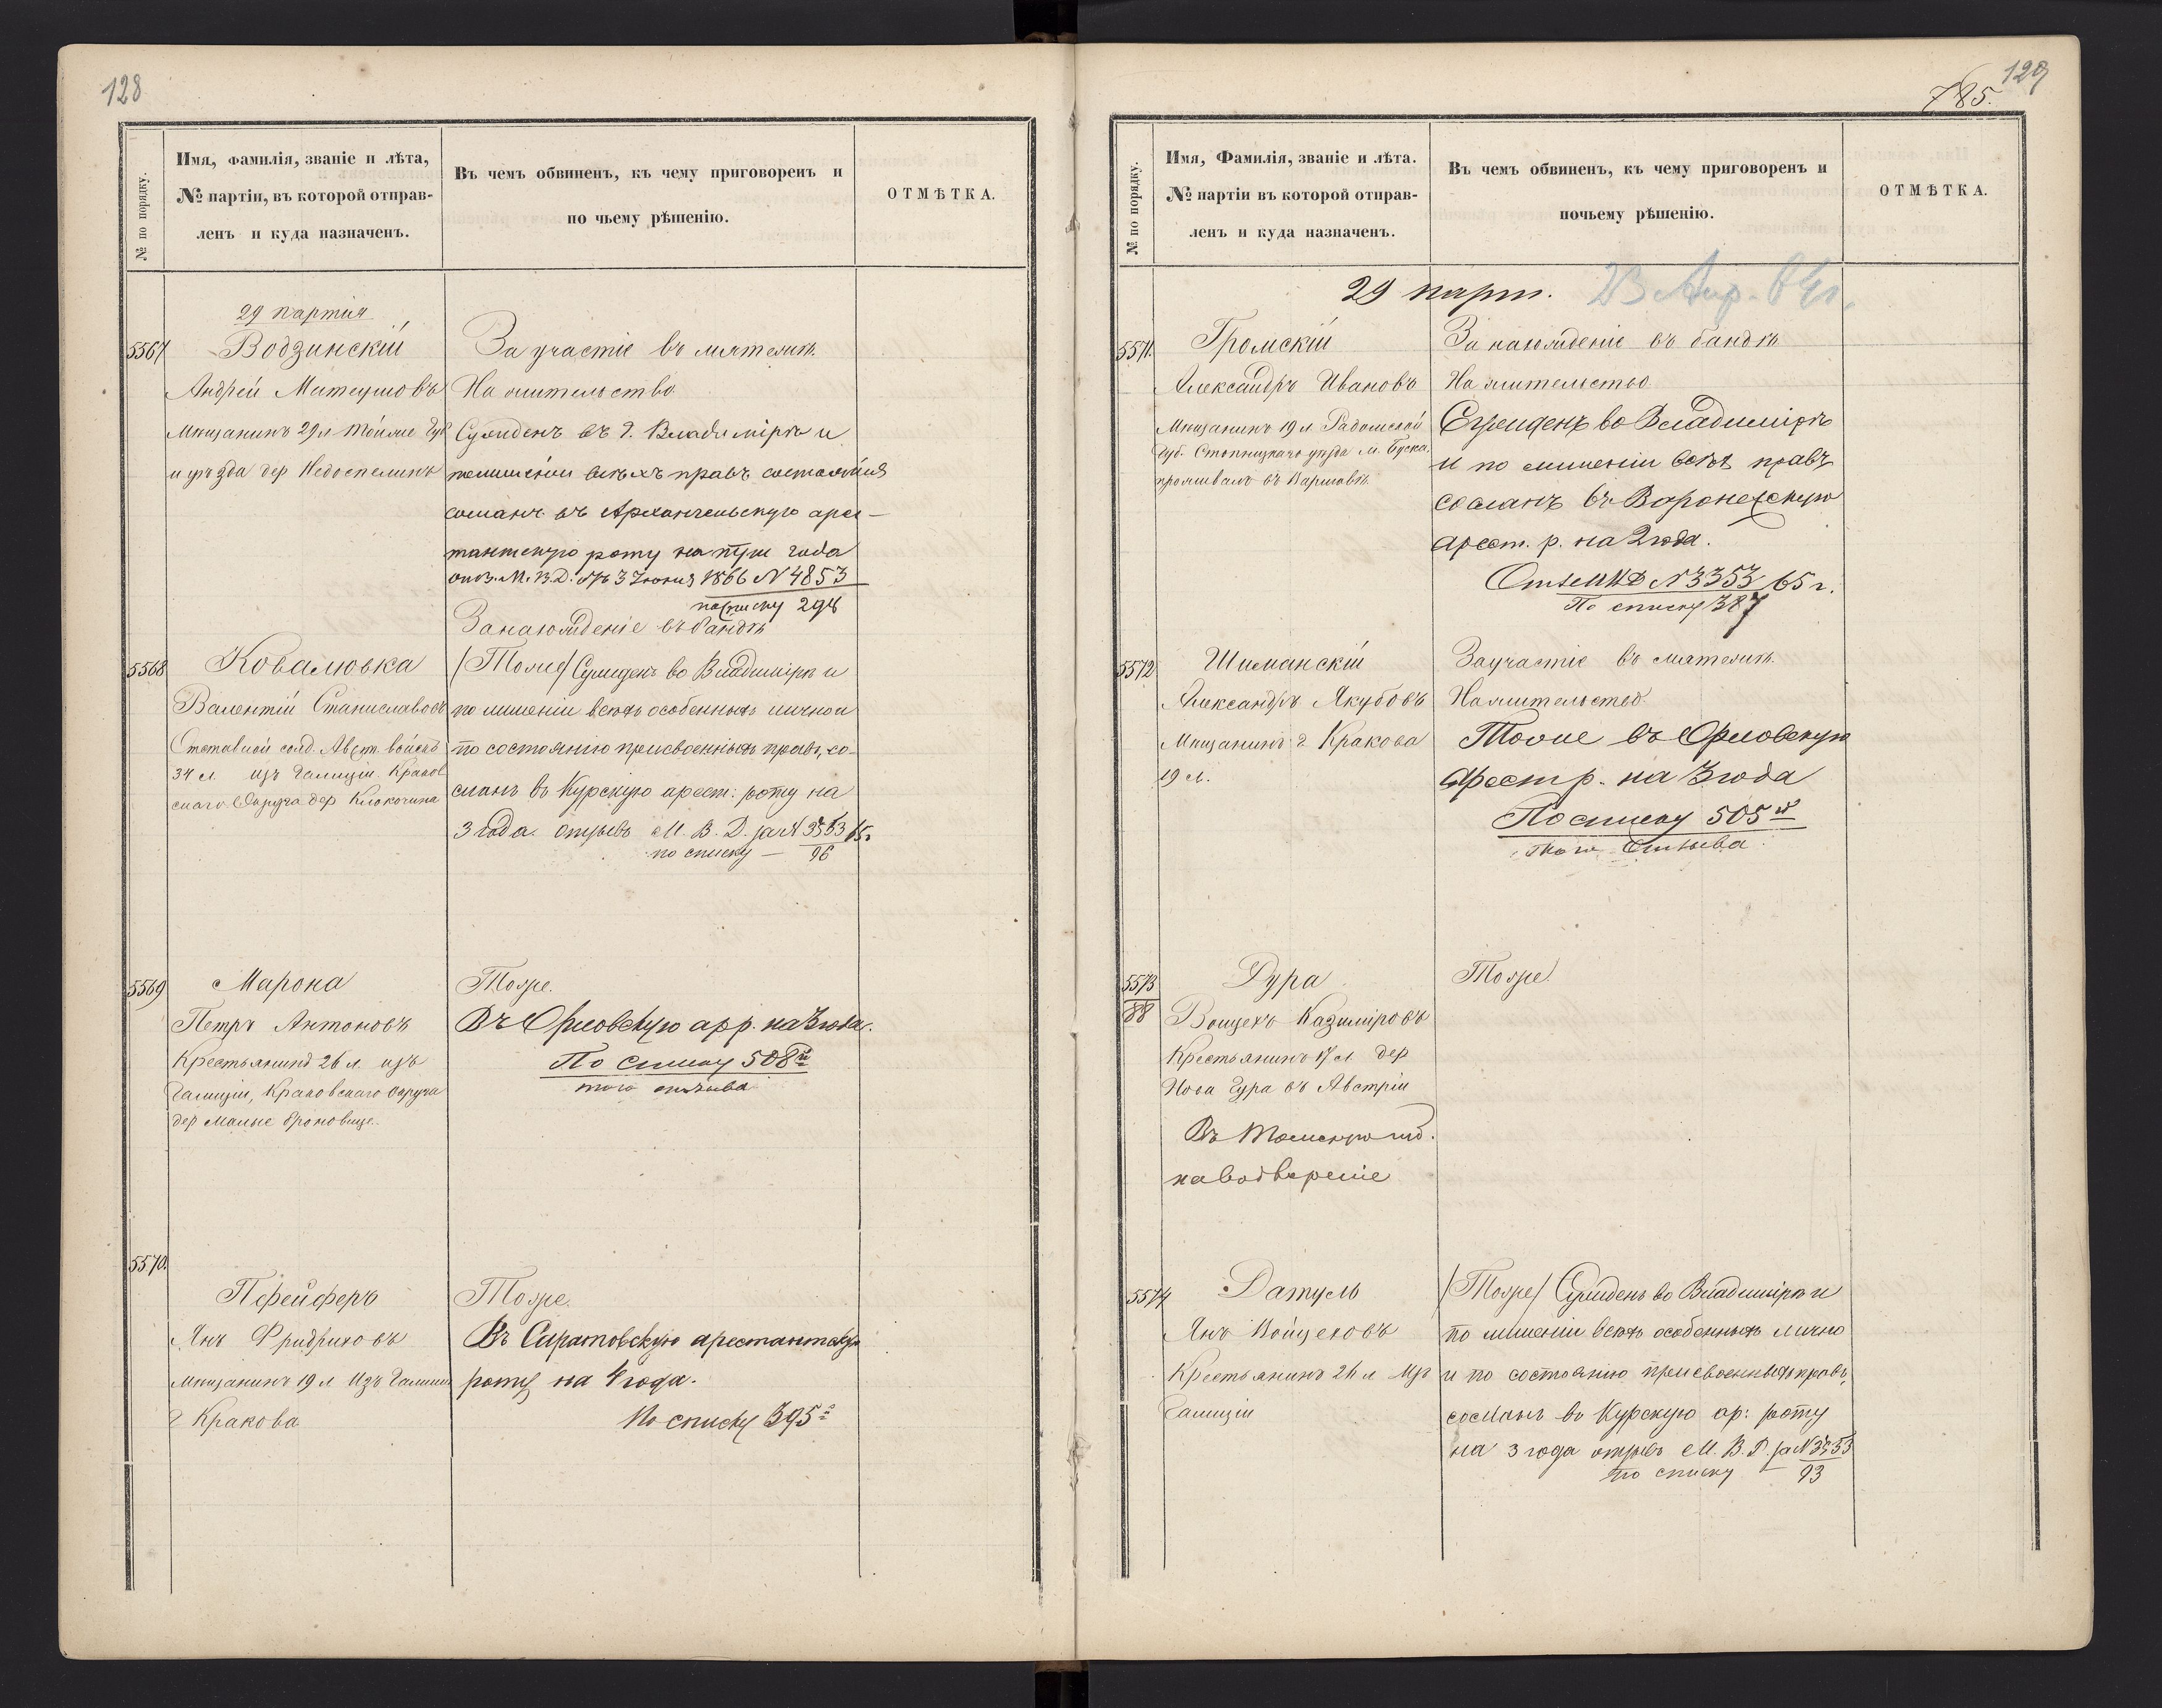 128
№ по порядку.
Имя, фамилія, званіе и лѣта,
№ партіи, въ которой отправ-
ленъ и куда назначенъ.
Въ чемъ обвиненъ, къ чему приговоренъ и
по чьему рѣшенію.
ОТМѢТКА.
29 партія
5567
Водзинскій
Андрей Матеушовъ
Мѣщанинъ 29 л Той же Губ
и уѣзда дер
За участіе въ мятежѣ
На жительство
Сужденъ въ г. Владимірѣ и
по лишеніи всѣхъ правъ состоянія
сосланъ въ Архангельскую арес-
тантскую роту на три года
отз. М. В. Д. отъ 3 Іюня 1866 № 4853
по списку 298
За нахожденіе въ бандѣ
5568
Ковалювка
Валентій Станиславовъ
Отставной солд. Авст. войскъ
34 л. изъ Галиціи. Краков
скаго Округа дер Клокочина
/Тоже/ Сужденъ во Владимірѣ и
по лишеніи всѣхъ особенныхъ лично и
по состоянію присвоенныхъ правъ, со-
сланъ въ Курскую арест: роту на
3 года. отзывъ М. В. Д. за № 3353 65г
по списку — 96
5569
Марока
Петръ Антоновъ
Крестьянинъ 26 л. изъ
Галиціи, Краковскаго Округа
дер Малые Броновице.
Тоже.
Въ Орловскую ар р. на 3 года.
По списку 508й
того отзыва
5570.
Пфейферъ
Янъ Фридриховъ
Мѣщанинъ 19 л Изъ Галиціи
г Кракова
Тоже.
Въ Саратовскую арестантскую
роту на 4 года.
По списку 395й
129
785.
№ по порядку.
Имя, Фамилія, званіе и лѣта.
№ партіи въ которой отправ-
ленъ и куда назначенъ.
Въ чемъ обвиненъ, къ чему приговоренъ и
почьему рѣшенію.
ОТМѢТКА.
29 парт. 23 Апр. 64г.
5571.
Громскій
Александръ Ивановъ
Мѣщанинъ 19 л. Радомской
Губ. Стопницкаго уѣзда м. Буска,
проживалъ въ Варшавѣ.
За нахожденіе въ бандѣ
На жительство
Сужденъ во Владимірѣ
и по лишеніи всѣхъ правъ
сосланъ въ Воронежскую
арест. р. на 2 года.
Отз МВД № 3353 65 г.
По списку 387
5572
Шиманскій
Александръ Якубовъ
Мѣщанинъ г Кракова
19 л.
За участіе въ мятежѣ.
На жительство
Тоже въ Орловскую
арест р. на 3 года
По списку 505й
того Отзыва.
5573
88
Дура
Войцехъ Казиміровъ
Крестьянинъ 17 л. дер
Нова Гура въ Австріи
Въ Томскую губ.
на водвореніе
Тоже.
5574
Датуль
Янъ Войцеховъ
Крестьянинъ 26 л Изъ
Галиціи
/Тоже/ Сужденъ во Владимірѣ и
по лишеніи всѣхъ особенныхъ лично
и по состоянію присвоенныхъ правъ,
сосланъ въ Курскую ар: роту
на 3 года отзывъ М. В. Д. за № 3353
по списку — 93